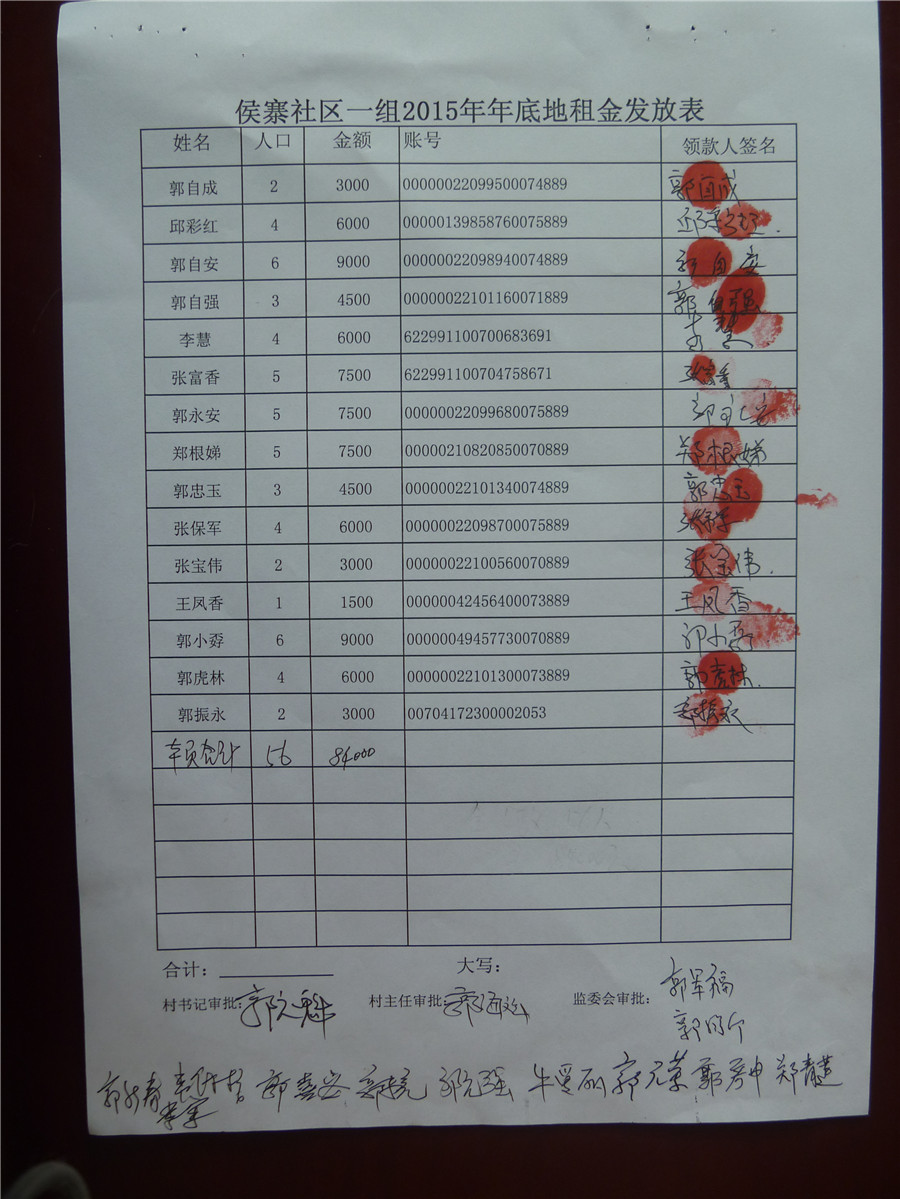 侯寨社区一组2015年年底地租金发放表
姓名 人口 金额 账号 领款人签名
郭自成 2 3000 00000022099500074889 郭自成
邱彩红 4 6000 00000139858760075889 邱彩红
郭自安 6 9000 00000022098940074889 郭自安
郭自强 3 4500 00000022101160071889 郭自强
李慧 4 6000 622991100700683691 李慧
张富香 5 7500 622991100704758671 张富香
郭永安 5 7500 00000022099680075889 郭永安
郑根娣 5 7500 00000210820850070889 郑根娣
郭忠玉 3 4500 00000022101340074889 郭忠玉
张保军 4 6000 00000022098700075889
张宝伟 2 3000 00000022100560070889 张宝伟
王凤香 1 1500 00000042456400073889 王凤香
郭小孬 6 9000 00000049457730070889
郭虎林 4 6000 00000022101300073889 郭虎林
郭振永 2 3000 00704172300002053 郭振永
本页合计 56 84000
合计： 大写：
村书记审批： 村主任审批： 监委会审批： 郭军福
郑青莲